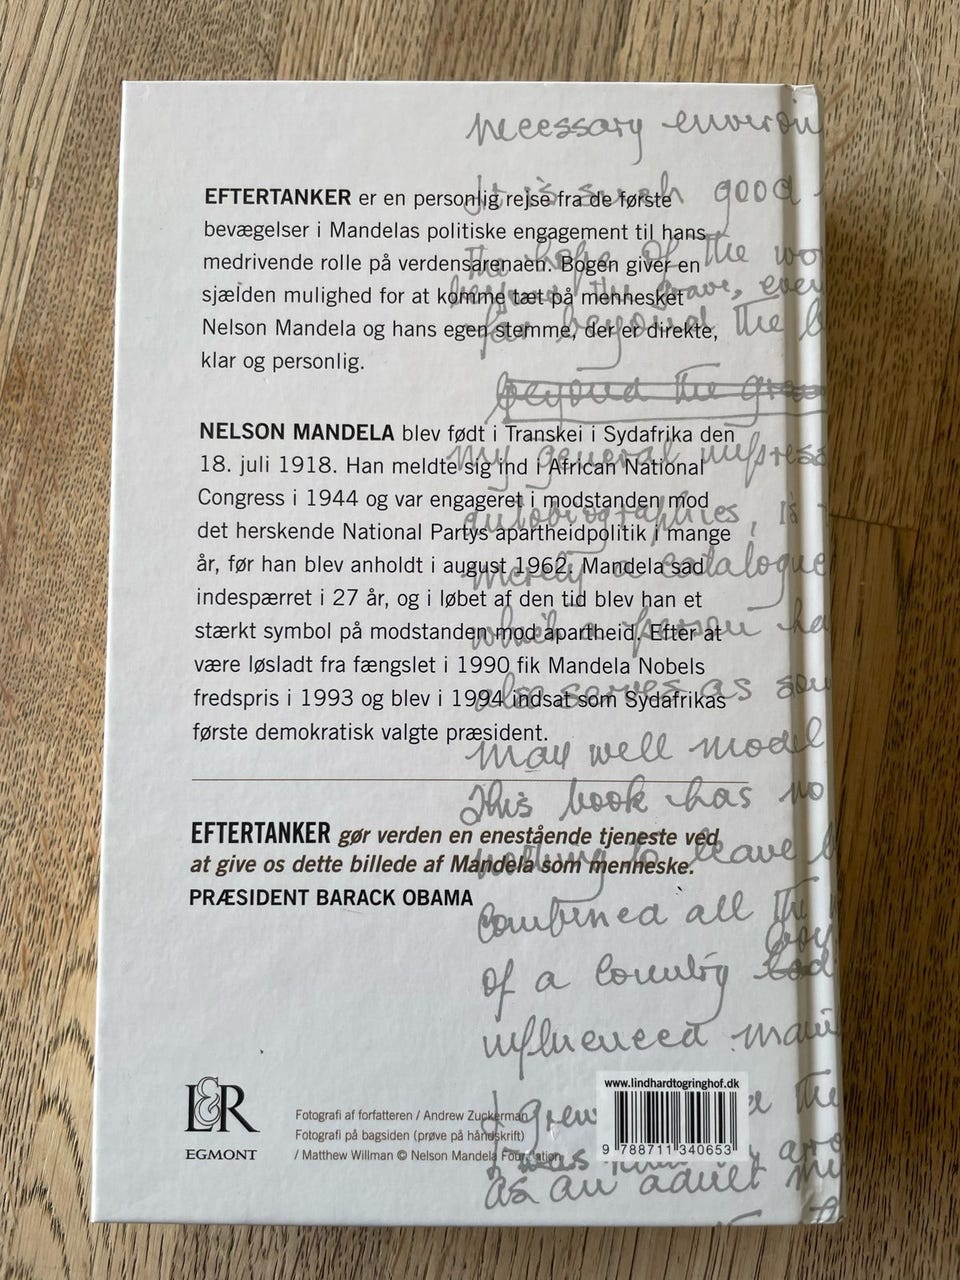 necessary
It is such good
EFTERTANKER er en personlig rejse fra de første
bevægelser i Mandelas politiske engagement til hans
the hope of the
medrivende rolle på verdensarenaen. Bogen giver en
beyond the grave,
sjælden mulighed for at komme tæt på mennesket
far beyond the
Nelson Mandela og hans egen stemme, der er direkte,
klar og personlig.
beyond the
NELSON MANDELA blev født i Transkei i Sydafrika den
my general
18. juli 1918. Han meldte sig ind i African National
Congress i 1944 og var engageret i modstanden mod
autobiographies, is
det herskende National Partys apartheidpolitik i mange
merely a catalogue
år, før han blev anholdt i august 1962. Mandela sad
indespærret i 27 år, og i løbet af den tid blev han et
what a person
stærkt symbol på modstanden mod apartheid. Efter at
være løsladt fra fængslet i 1990 fik Mandela Nobels
also serves as
fredspris i 1993 og blev i 1994 indsat som Sydafrikas
første demokratisk valgte præsident.
may well model
This book has no
EFTERTANKER gør verden en enestående tjeneste ved
to leave
at give os dette billede af Mandela som menneske.
PRÆSIDENT BARACK OBAMA
combined all the
of a country
influenced
L&R
EGMONT
Fotografi af forfatteren / Andrew Zuckerman
Fotografi på bagsiden (prøve på håndskrift)
/ Matthew Willman © Nelson Mandela Foundation
www.lindhardtogringhof.dk
9 788711 340653
I grew
as an adult